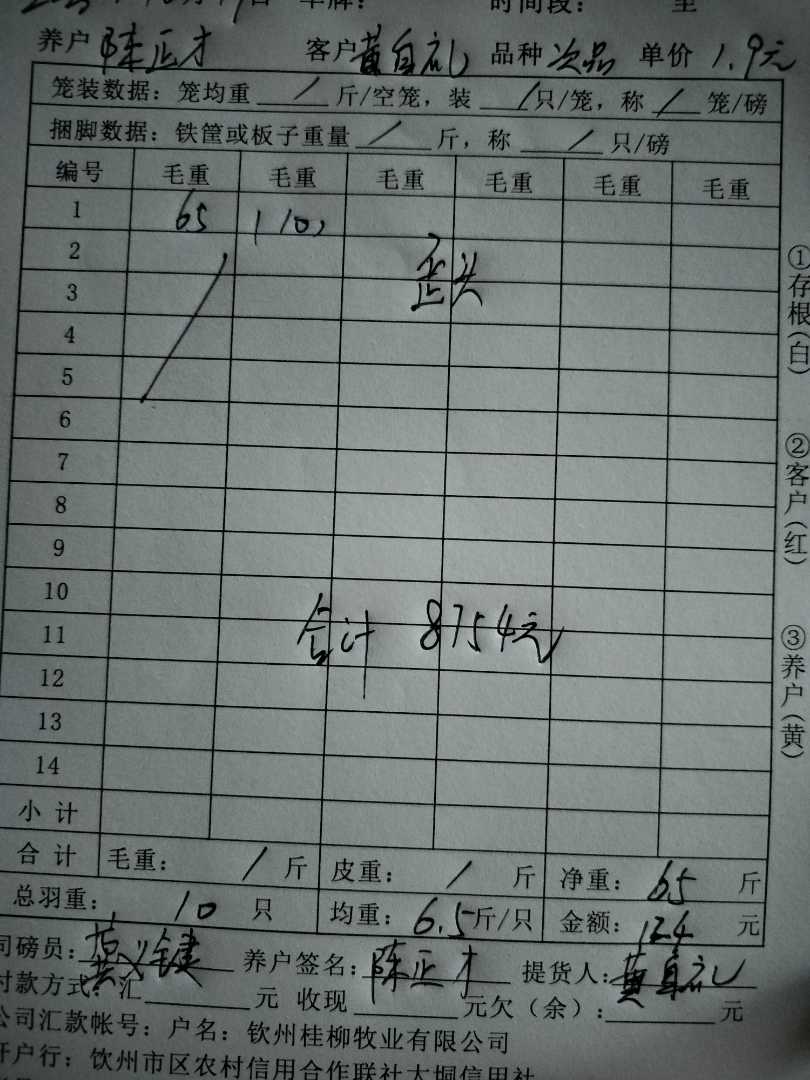 时间段： 至
养户 陈正才 客户 黄自礼 品种 次品 单价 1.9元
笼装数据：笼均重 / 斤/空笼，装 / 只/笼，称 / 笼/磅
捆脚数据：铁筐或板子重量 / 斤，称 / 只/磅
编号 毛重 毛重 毛重 毛重 毛重 毛重
1 65 (10)
2
歪头
3
4
5
6
7
8
9
10
11 合计 8754元
12
13
14
小计
合计 毛重： / 斤 皮重： / 斤 净重： 65 斤
总羽重： 10 只 均重： 6.5 斤/只 金额： 124 元
司磅员： 养户签名：陈正才 提货人：黄自礼
付款方式：汇 元 收现 元欠（余）： 元
公司汇款帐号：户名：钦州桂柳牧业有限公司
开户行：钦州市区农村信用合作联社大垌信用社
①存根(白)
②客户(红)
③养户(黄)